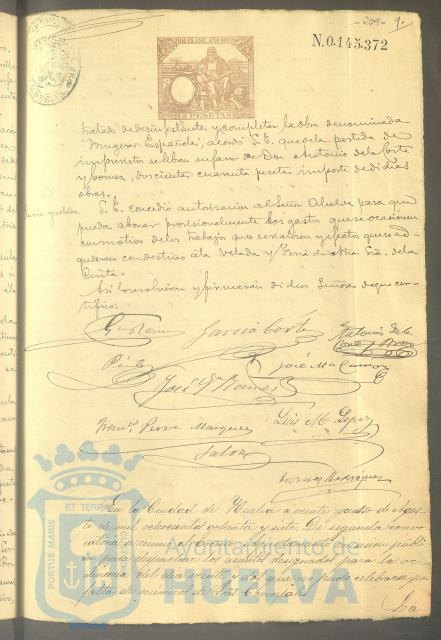 -209- 9.
10ª CLASE. AÑO 1887
N.0.145.372
PESETAS
tratado de dicho estante y completar la obra denominada
"Mugeres Españolas", acordó S.E. que de la partida de
imprevistos se libren á favor de Don Antonio de la Corte
y Gomez, doscientas cuarenta pesetas importe de dichas
obras.
S.E. concedió autorizacion al Señor Alcalde para que
pueda abonar provisionalmente los gastos que se ocasionen
con motivo de los trabajos que se realicen y efectos que se ad-
quieran con destino á la Velada y Feria de Ntra. Sra. de la
Cinta.
Así lo resolvieron y firmarán di dhos Señores de que cer-
tifico.
Garcia Cortés
Antonio de la
Corte y Bravo
José Mª
José Ramos
Perez Marquez
Luis M. Lopez
En la Ciudad de Huelva á veinte y cuatro de Agos-
to de mil ochocientos ochenta y siete. De segunda convo-
catoria se reunió el Excmo. Ayuntamiento en sesion públi-
ca para despachar los asuntos designados para la or-
dinaria del dia veinte y dos que no pudo celebrarse por
falta de número de Sres. Concejales
La
PORTUS MARIS ET TERRAE CUSTODIA
Ayuntamiento de
HUELVA